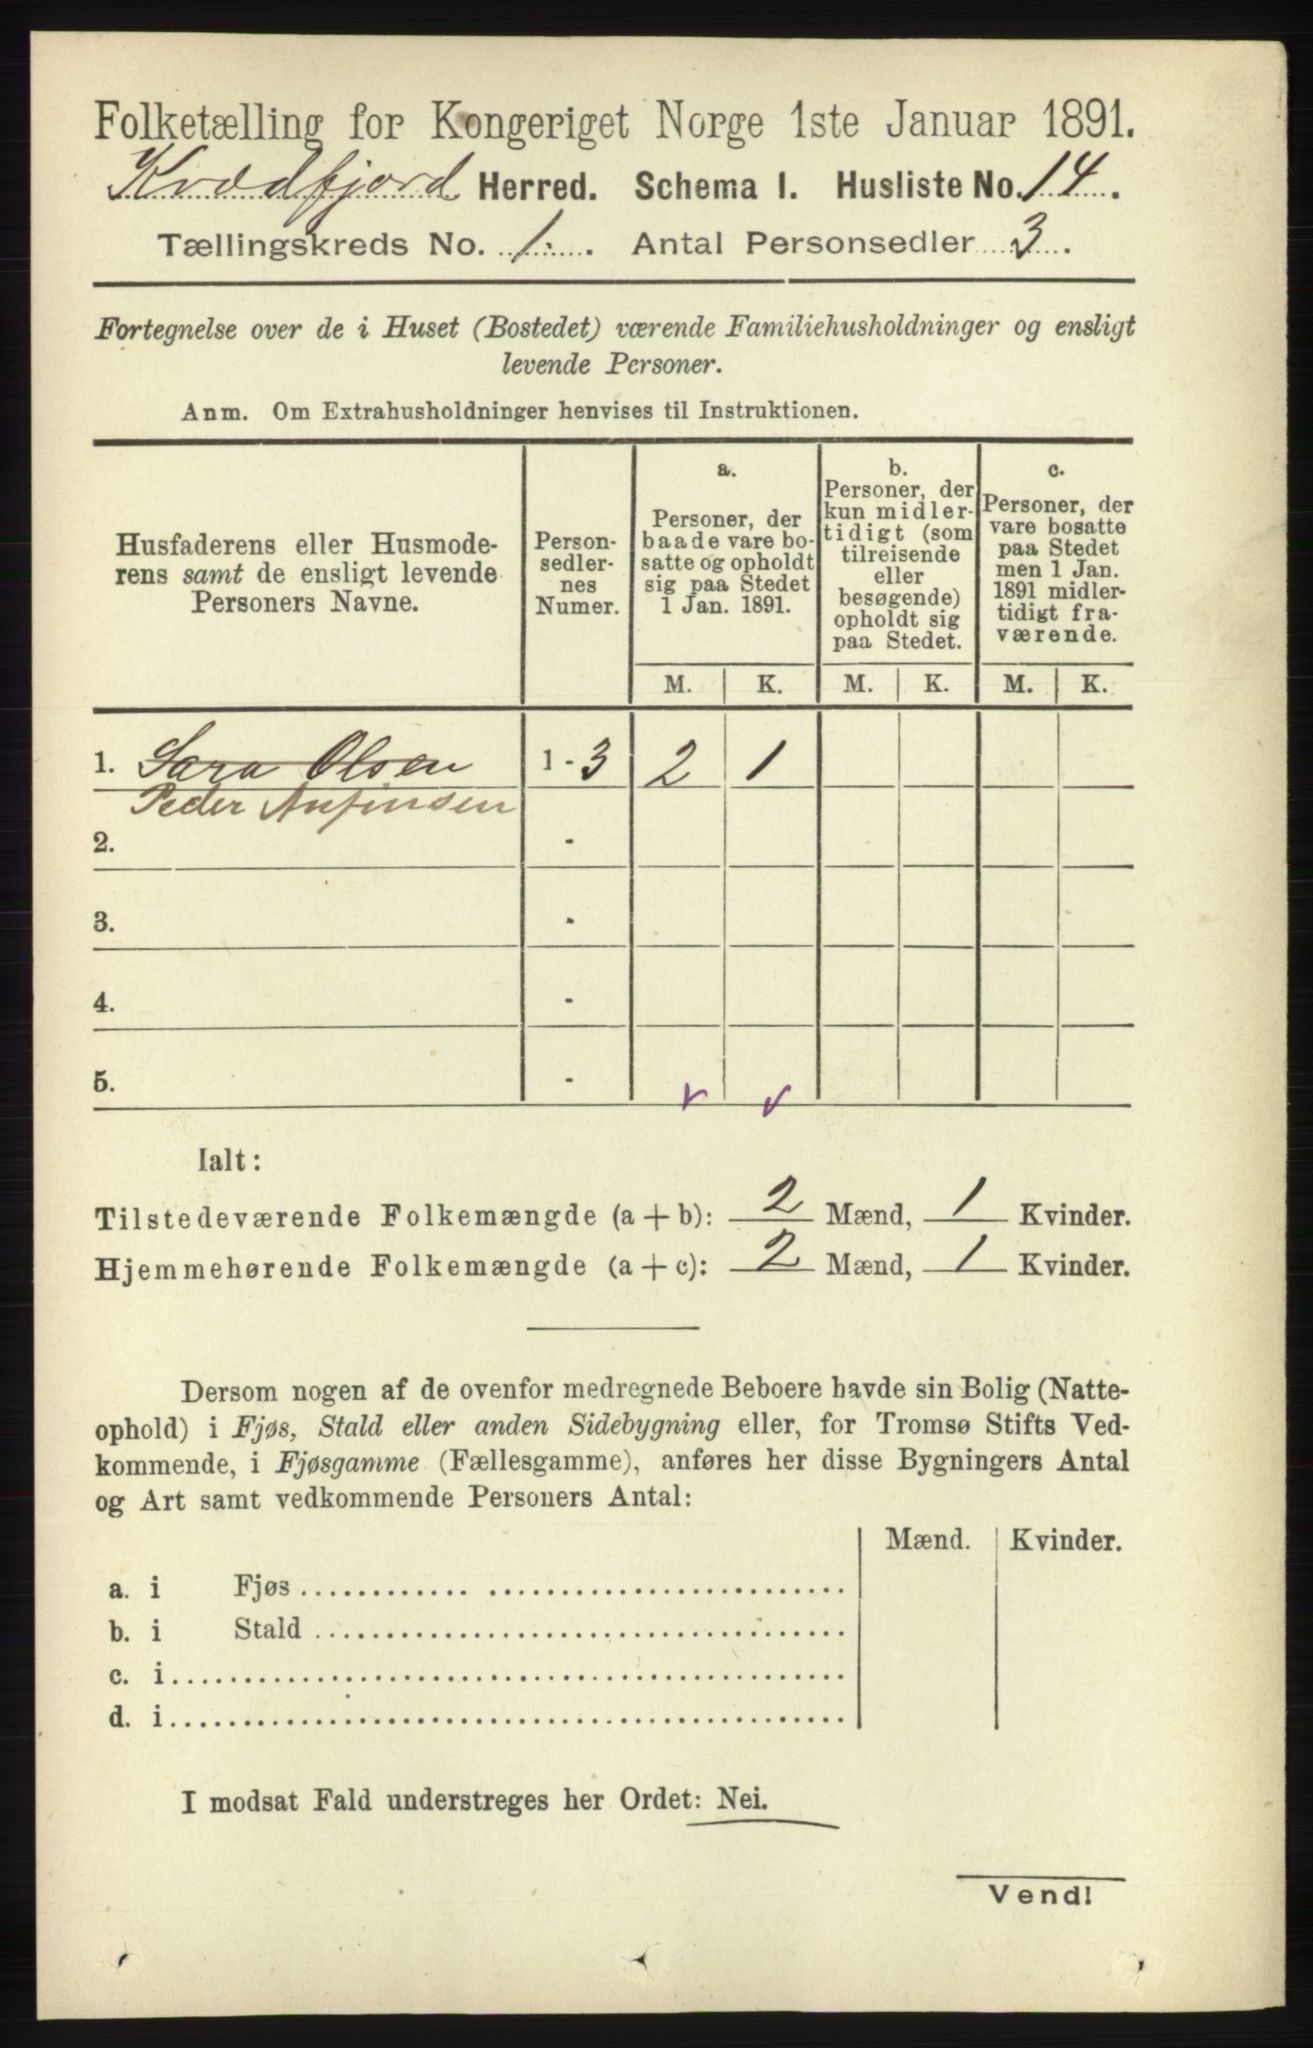 Folketælling for Kongeriget Norge 1ste Januar 1891.
Kvædfjord Herred. Schema I. Husliste No. 14.
Tællingskreds No. 1. Antal Personsedler 3.
Fortegnelse over de i Huset (Bostedet) værende Familiehusholdninger og ensligt
levende Personer.
Anm. Om Extrahusholdninger henvises til Instruktionen.
Husfaderens eller Husmode-
rens samt de ensligt levende
Personers Navne.
Person-
sedler-
nes
Numer.
a.
Personer, der
baade vare bo-
satte og opholdt
sig paa Stedet
1 Jan. 1891.
b.
Personer, der
kun midler-
tidigt (som
tilreisende
eller
besøgende)
opholdt sig
paa Stedet.
c.
Personer, der
vare bosatte
paa Stedet
men 1 Jan.
1891 midler-
tidigt fra-
værende.
M. K. M. K. M. K.
1. Sara Olsen 1 - 3 2 1
Peder Anfinsen
2. -
3. -
4. -
5. -
Ialt:
Tilstedeværende Folkemængde (a + b): 2 Mænd, 1 Kvinder.
Hjemmehørende Folkemængde (a + c): 2 Mænd, 1 Kvinder.
Dersom nogen af de ovenfor medregnede Beboere havde sin Bolig (Natte-
ophold) i Fjøs, Stald eller anden Sidebygning eller, for Tromsø Stifts Ved-
kommende, i Fjøsgamme (Fællesgamme), anføres her disse Bygningers Antal
og Art samt vedkommende Personers Antal:
Mænd. Kvinder.
a. i Fjøs
b. i Stald
c. i
d. i
I modsat Fald understreges her Ordet: Nei.
Vend!